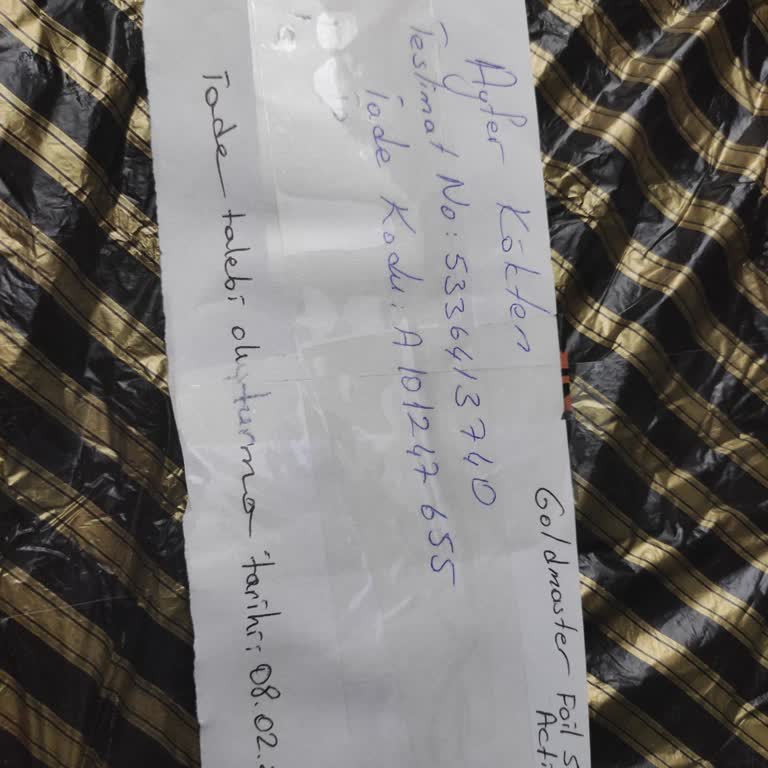 Goldmaster Foil S
Acti
Ayfer Kökten
Teslimat No: 5336413740
İade Kodu: A101247655
İade talebi oluşturma tarihi: 08.02.